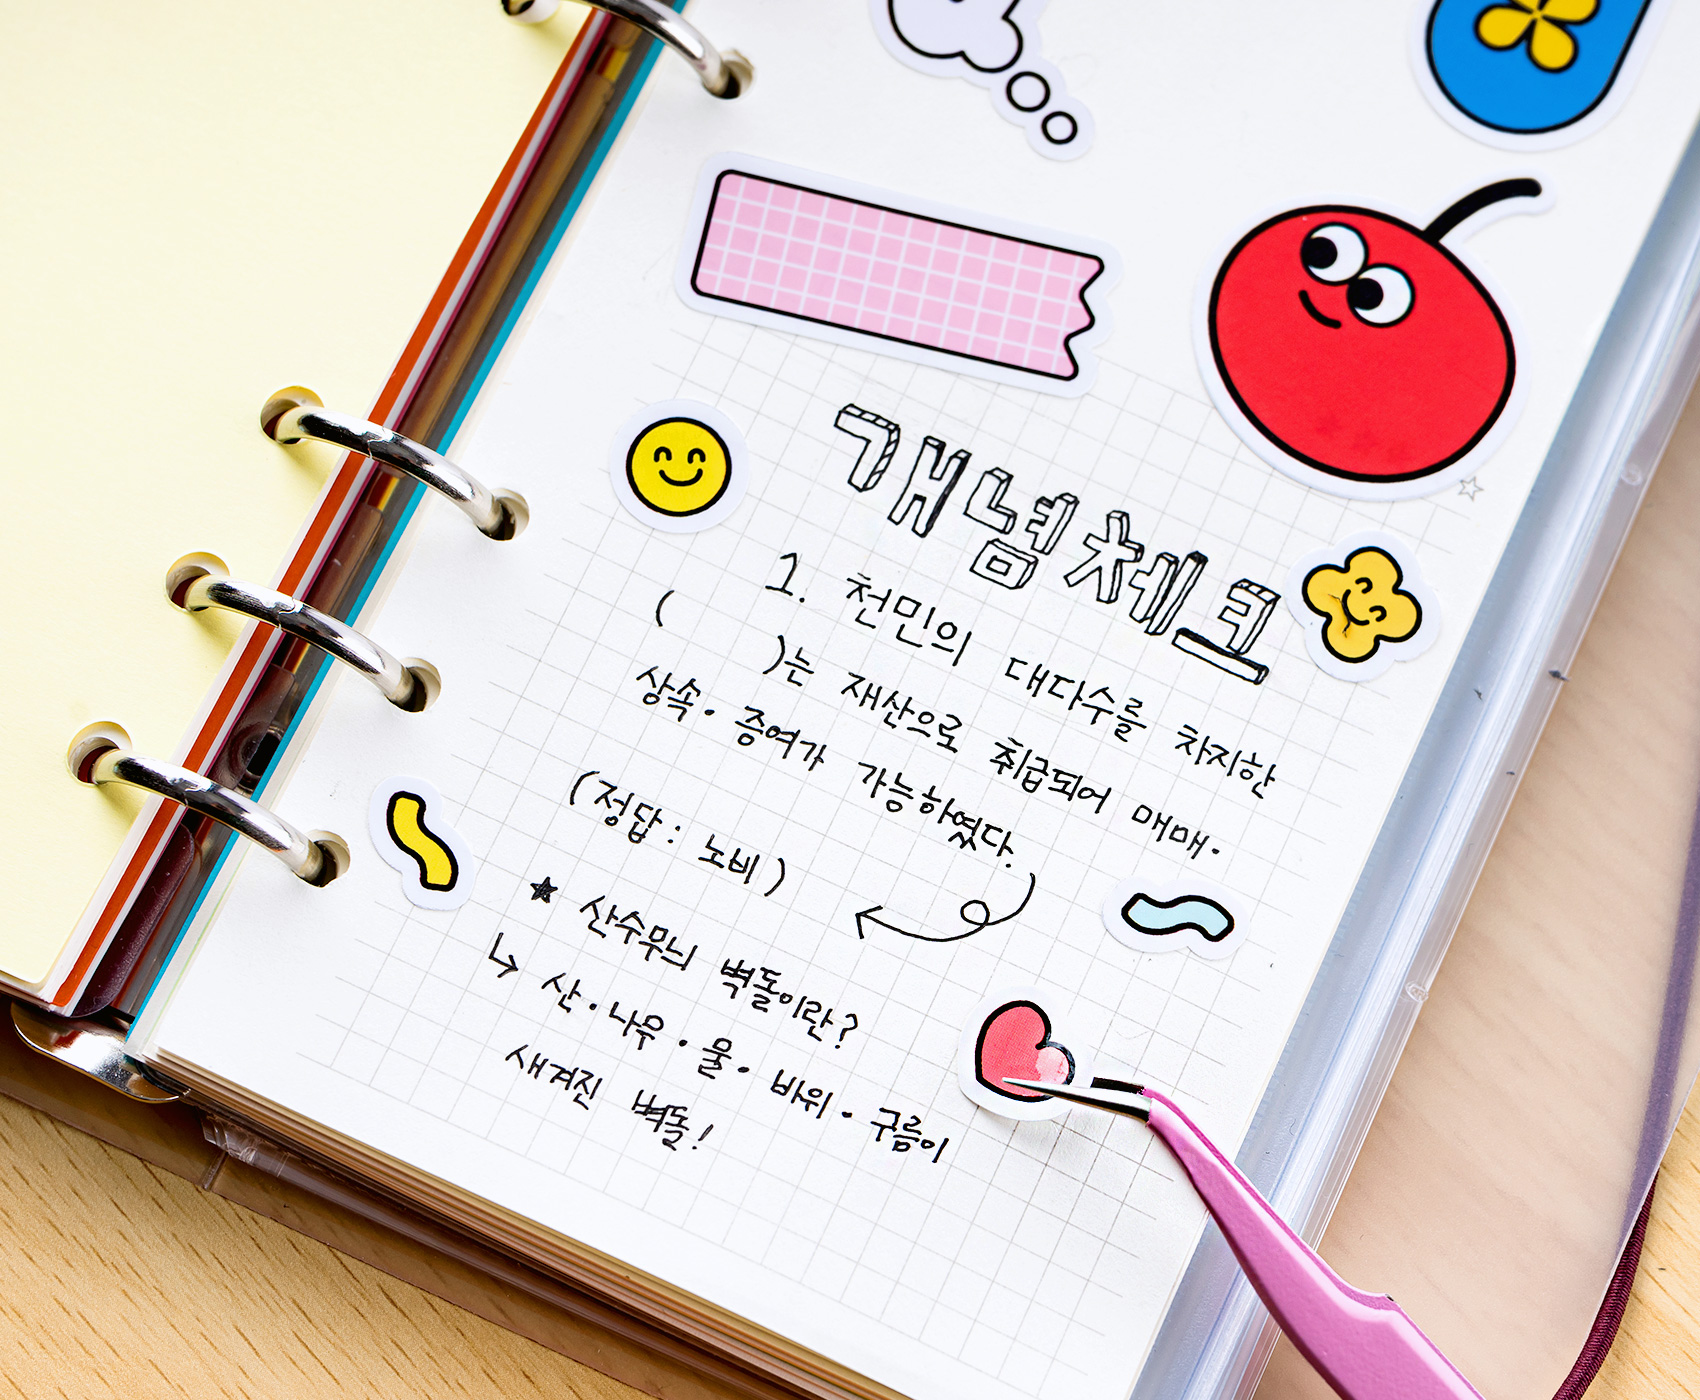 개념체크
1. 천민의 대다수를 차지한
( )는 재산으로 취급되어 매매·
상속·증여가 가능하였다.
(정답 : 노비)
★ 산수무늬 벽돌이란?
↳ 산·나무·물·바위·구름이
새겨진 벽돌!